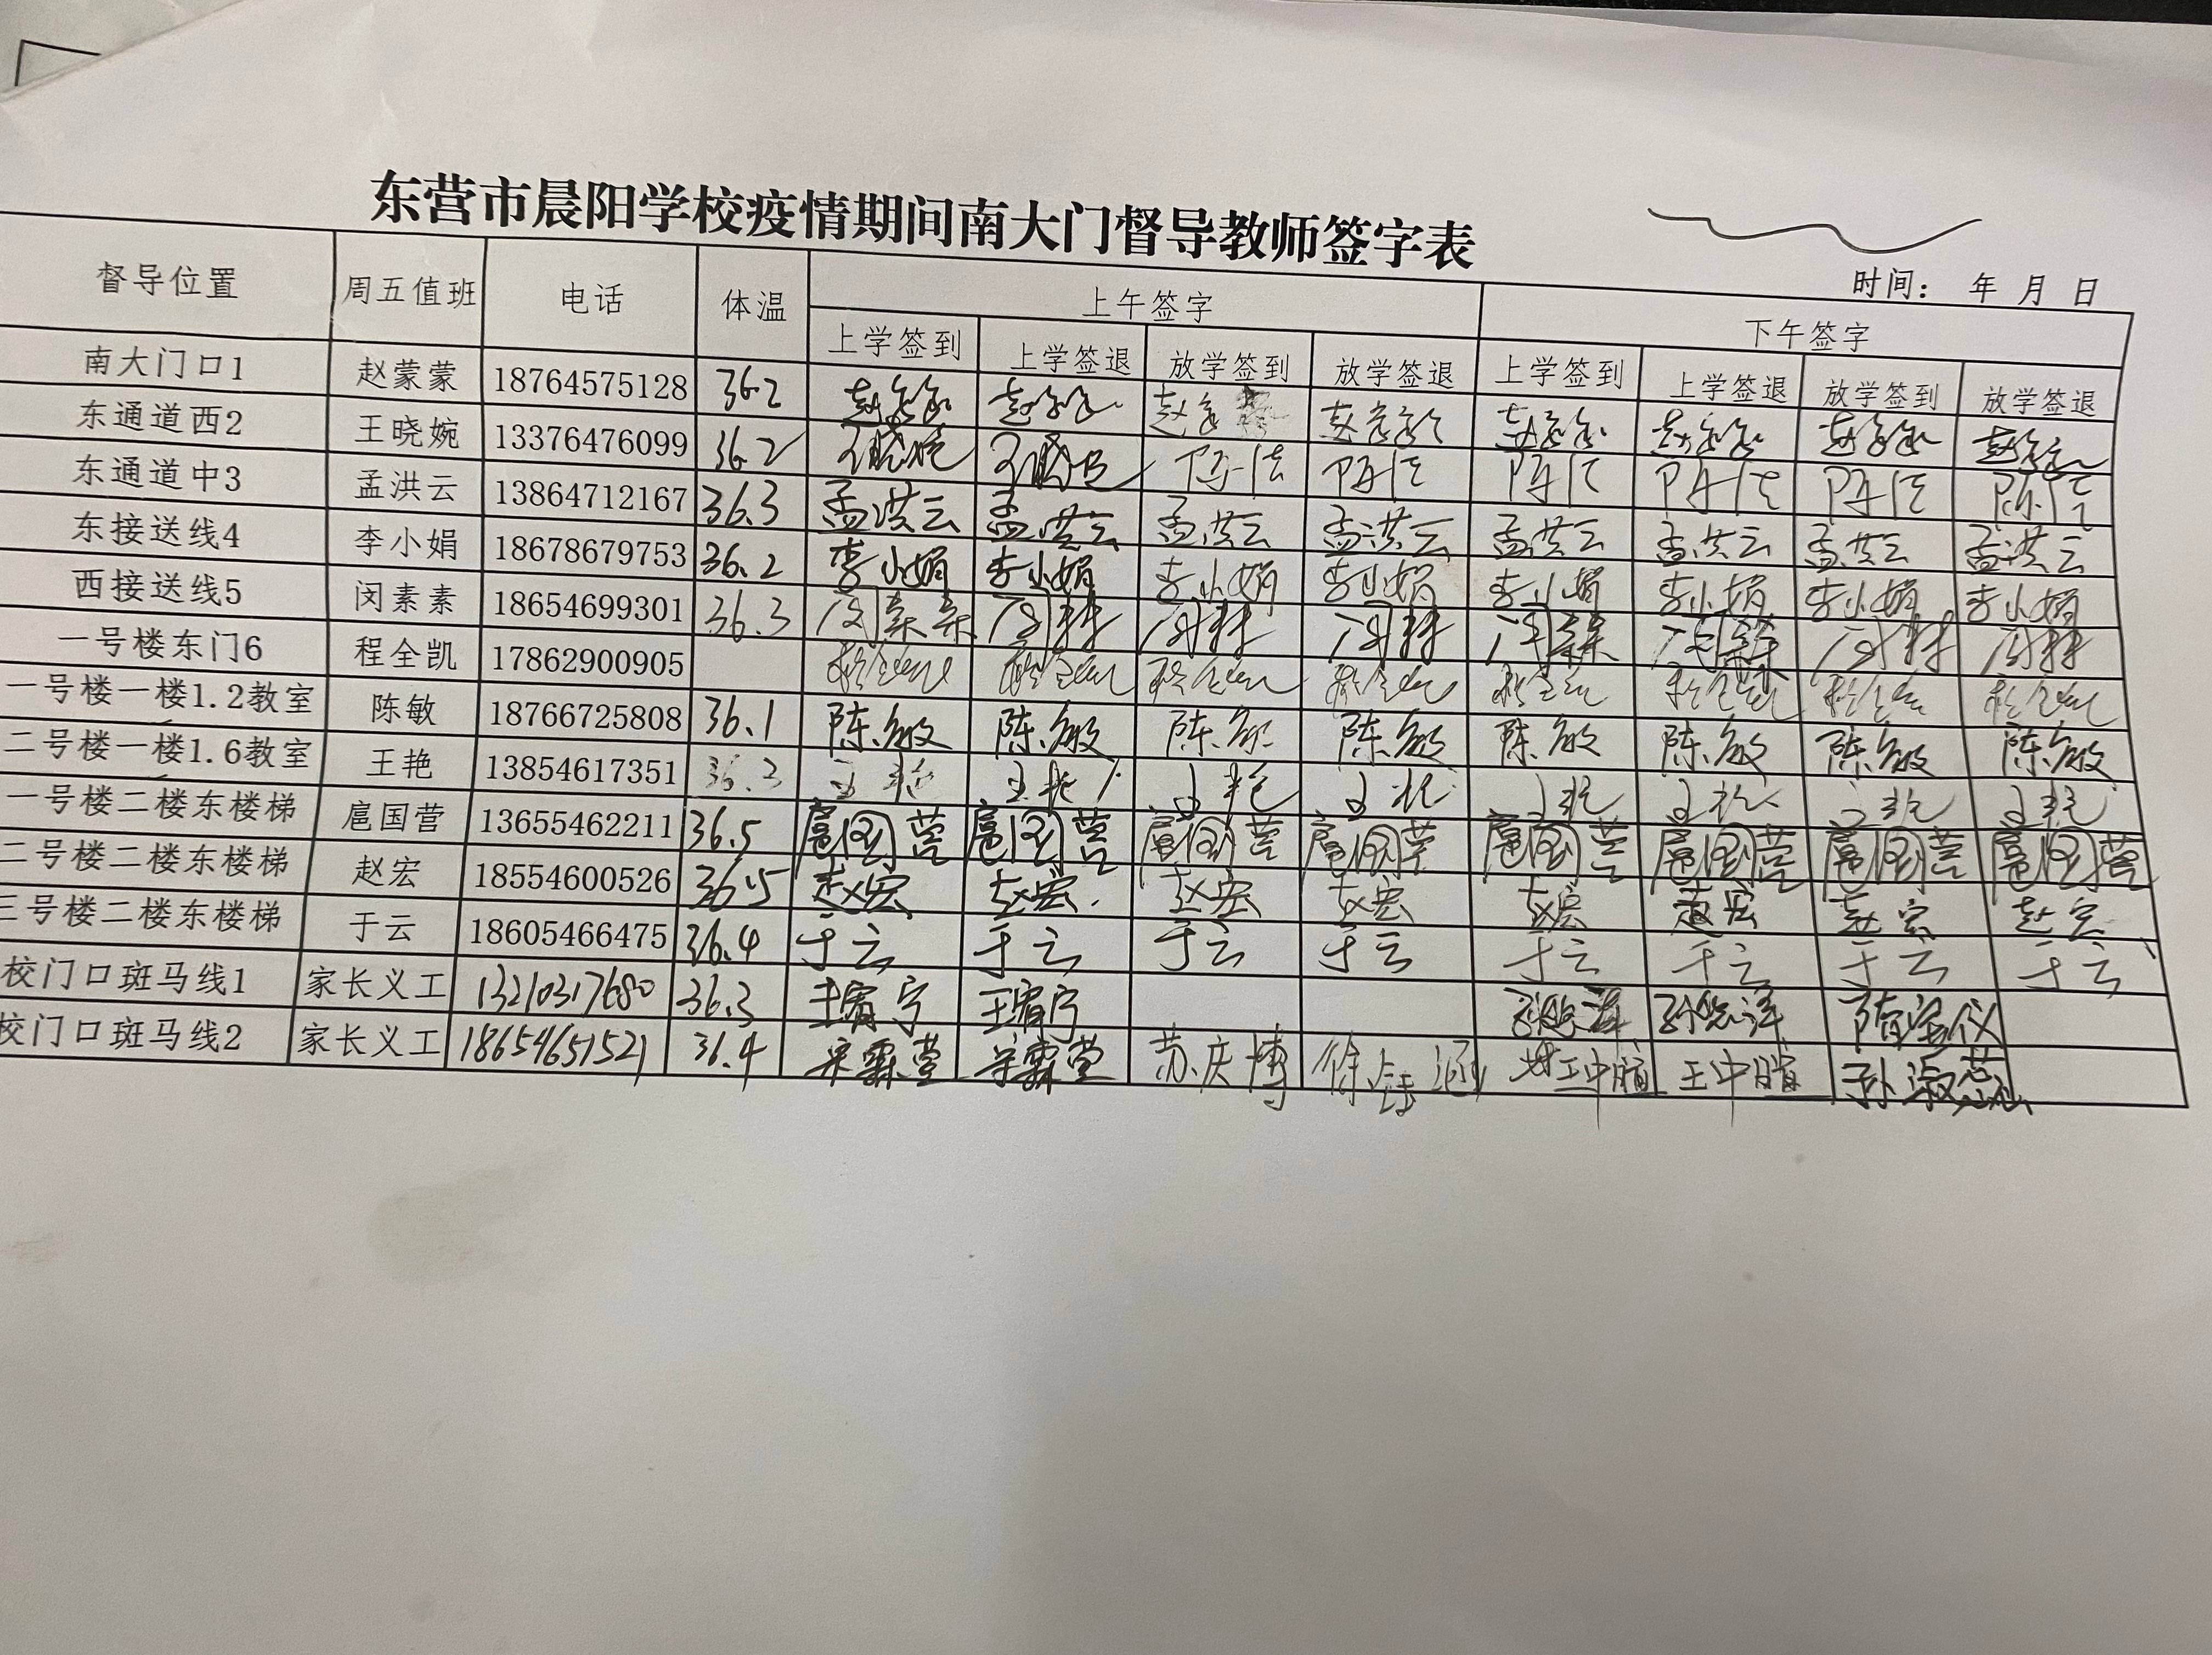 东营市晨阳学校疫情期间南大门督导教师签字表
时间： 年 月 日
督导位置 周五值班 电话 体温 上午签字 下午签字
上学签到 上学签退 放学签到 放学签退 上学签到 上学签退 放学签到 放学签退
南大门口1 赵蒙蒙 18764575128 36.2 赵蒙蒙 赵蒙蒙 赵蒙蒙 赵蒙蒙 赵蒙蒙 赵蒙蒙 赵蒙蒙 赵蒙蒙
东通道西2 王晓婉 13376476099 36.2 王晓婉 王晓婉
东通道中3 孟洪云 13864712167 36.3 孟洪云 孟洪云 孟洪云 孟洪云 孟洪云 孟洪云 孟洪云 孟洪云
东接送线4 李小娟 18678679753 36.2 李小娟 李小娟 李小娟 李小娟 李小娟 李小娟 李小娟 李小娟
西接送线5 闵素素 18654699301 36.3 闵素素 闵素素 闵素素 闵素素 闵素素 闵素素 闵素素 闵素素
一号楼东门6 程全凯 17862900905 程全凯 程全凯 程全凯 程全凯 程全凯 程全凯 程全凯 程全凯
一号楼一楼1.2教室 陈敏 18766725808 36.1 陈敏 陈敏 陈敏 陈敏 陈敏 陈敏 陈敏 陈敏
二号楼一楼1.6教室 王艳 13854617351 36.3 王艳 王艳 王艳 王艳 王艳 王艳 王艳 王艳
一号楼二楼东楼梯 扈国营 13655462211 36.5 扈国营 扈国营 扈国营 扈国营 扈国营 扈国营 扈国营 扈国营
二号楼二楼东楼梯 赵宏 18554600526 36.5 赵宏 赵宏 赵宏 赵宏 赵宏 赵宏 赵宏 赵宏
三号楼二楼东楼梯 于云 18605466475 36.4 于云 于云 于云 于云 于云 于云 于云 于云
校门口斑马线1 家长义工 13210317680 36.3 王宥宁 王宥宁
校门口斑马线2 家长义工 18654651521 36.4 宋霖萱 宋霖萱 苏庆博 徐钰涵 王中暄 王中暄